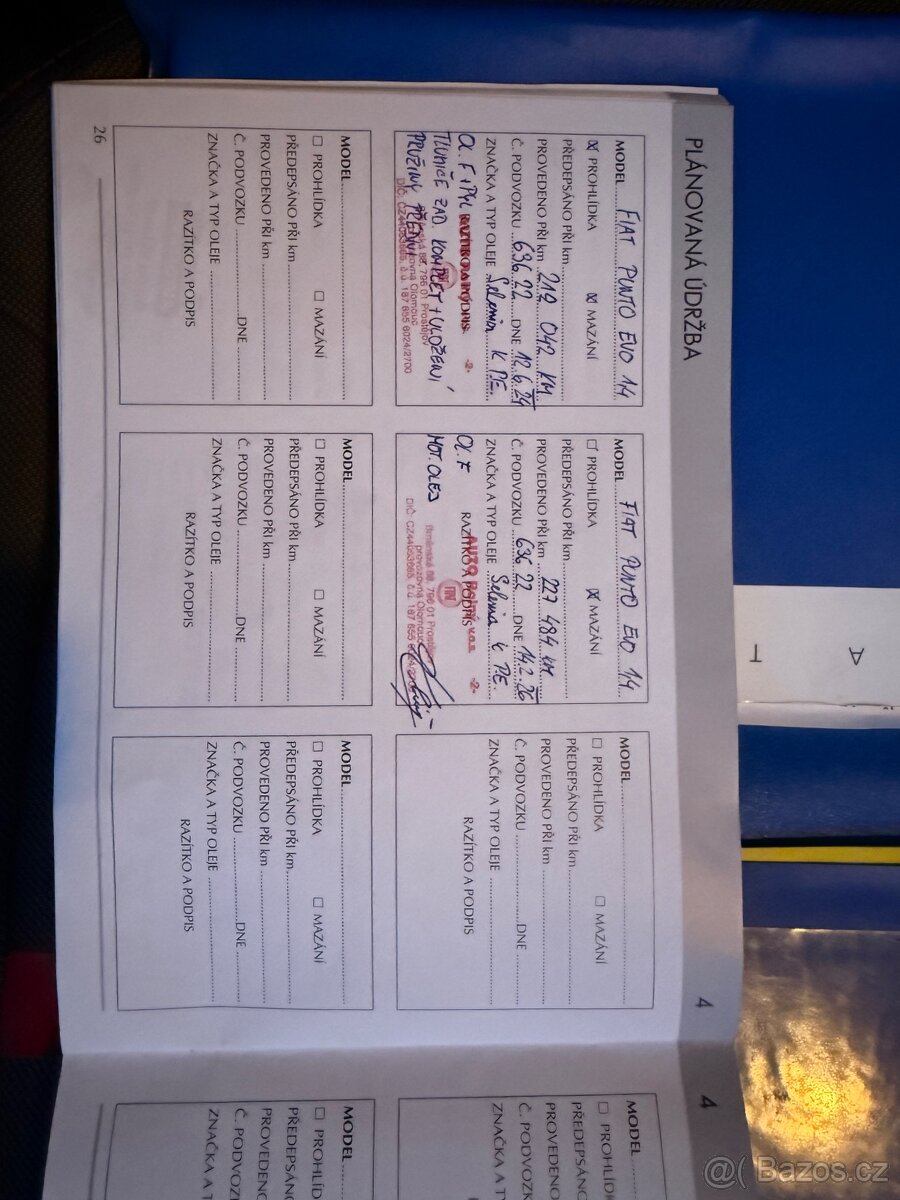 PLÁNOVANÁ ÚDRŽBA
4
MODEL FIAT PUNTO EVO 1.4
☒ PROHLÍDKA ☒ MAZÁNÍ
PŘEDEPSÁNO PŘI km
PROVEDENO PŘI km 212 042 KM
Č. PODVOZKU 63622 DNE 12.6.24
ZNAČKA A TYP OLEJE Selenia K P.E.
OL. F + PYL RAZÍTKO A PODPIS -2-
TLUMIČE ZAD KOMPLET + ULOŽENÍ
PRUŽINY PŘEDNÍ
88, 796 01 Prostějov
provozovna Olomouc
DIČ: CZ44053665, č.ú. 187 655 6024/2700
MODEL FIAT PUNTO EVO 1.4
☐ PROHLÍDKA ☒ MAZÁNÍ
PŘEDEPSÁNO PŘI km
PROVEDENO PŘI km 227 484 KM
Č. PODVOZKU 63622 DNE 14.2.26
ZNAČKA A TYP OLEJE Selenia K P.E.
OL. F RAZÍTKO A PODPIS
AUTO v.o.s. -2-
MOT. OLEJ
Brněnská 88, 796 01 Prostějov
provozovna Olomouc
DIČ: CZ44053665, č.ú. 187 655
MODEL
☐ PROHLÍDKA ☐ MAZÁNÍ
PŘEDEPSÁNO PŘI km
PROVEDENO PŘI km
Č. PODVOZKU DNE
ZNAČKA A TYP OLEJE
RAZÍTKO A PODPIS
MODEL
☐ PROHLÍDKA ☐ MAZÁNÍ
PŘEDEPSÁNO PŘI km
PROVEDENO PŘI km
Č. PODVOZKU DNE
ZNAČKA A TYP OLEJE
RAZÍTKO A PODPIS
MODEL
☐ PROHLÍDKA ☐ MAZÁNÍ
PŘEDEPSÁNO PŘI km
PROVEDENO PŘI km
Č. PODVOZKU DNE
ZNAČKA A TYP OLEJE
RAZÍTKO A PODPIS
MODEL
☐ PROHLÍDKA ☐ MAZÁNÍ
PŘEDEPSÁNO PŘI km
PROVEDENO PŘI km
Č. PODVOZKU DNE
ZNAČKA A TYP OLEJE
RAZÍTKO A PODPIS
26
4
MODEL
☐ PROHLÍDKA
PŘEDEPSÁNO
PROVEDENO
Č. PODVOZK
ZNAČKA A T
MODEL
☐ PROHLÍD
PŘEDEPSÁNO
PROVEDENO
Č. PODVOZK
ZNAČKA A T
A
T
Bazos.cz